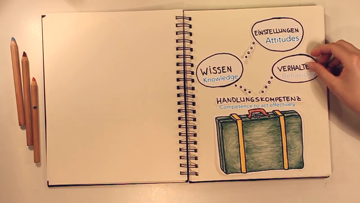 EINSTELLUNGEN
Attitudes
WISSEN
Knowledge
VERHALTE
HANDLUNGSKOMPETENZ
Competence to act effectively